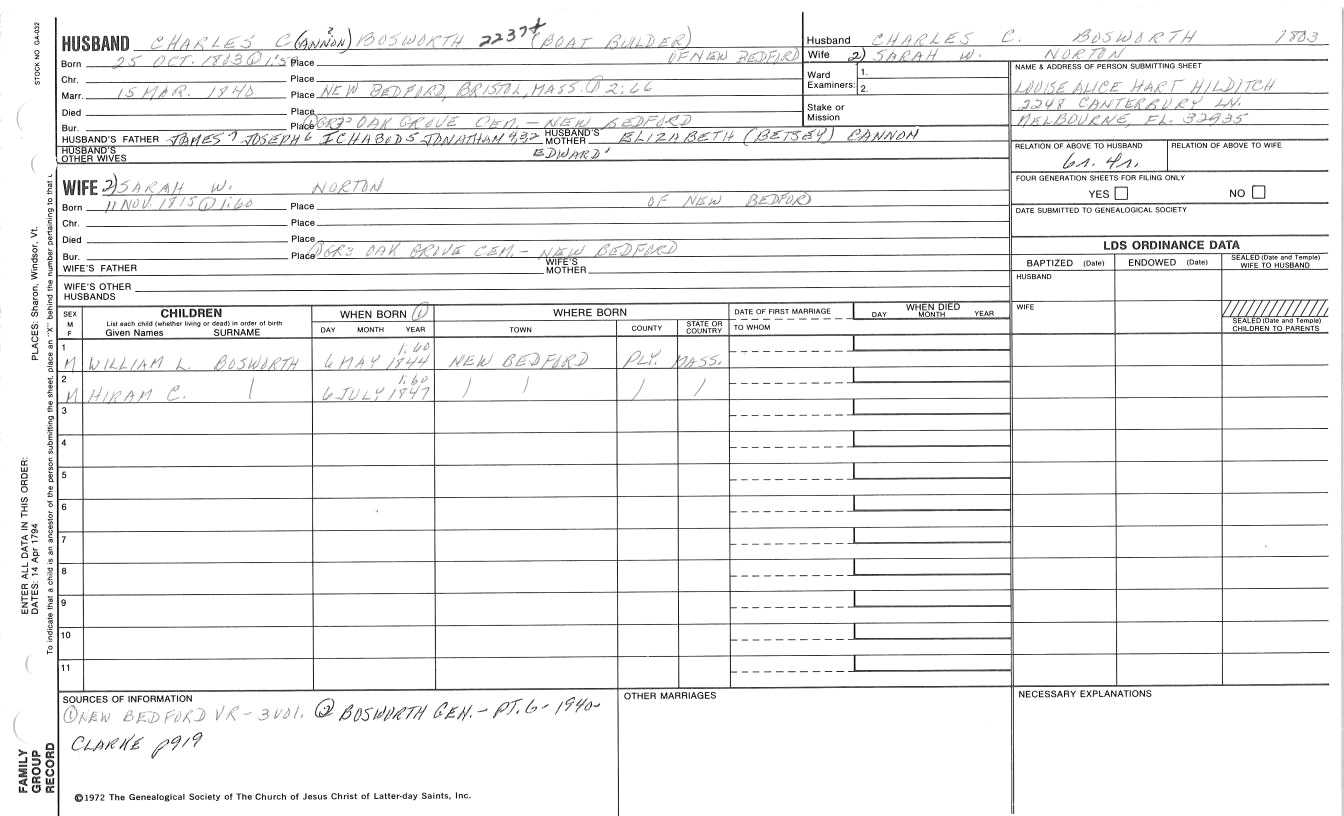 STOCK NO. GA-032
HUSBAND CHARLES C (ANNON)? BOSWORTH 2237+ (BOAT BUILDER)
Born 25 OCT. 1803 @ 1:5 Place OF NEW BEDFORD
Chr. Place
Marr. 15 MAR. 1840 Place NEW BEDFORD, BRISTOL, MASS. ① 2:66
Died Place
Bur. Place ① GR3 OAK GROVE CEM. - NEW BEDFORD
HUSBAND'S FATHER JAMES 7 JOSEPH 6 ICHABOD 5 JONATHAN 4,3,2 HUSBAND'S MOTHER ELIZABETH (BETSEY) CANNON
EDWARD 1
HUSBAND'S OTHER WIVES
WIFE 2) SARAH W. NORTON
Born 11 NOV. 1815 @ 1:60 Place OF NEW BEDFORD
Chr. Place
Died Place
Bur. Place ① GR3 OAK GROVE CEM. - NEW BEDFORD
WIFE'S FATHER WIFE'S MOTHER
WIFE'S OTHER HUSBANDS
Husband CHARLES C. BOSWORTH 1803
Wife 2) SARAH W. NORTON
Ward Examiners: 1. 2.
Stake or Mission
NAME & ADDRESS OF PERSON SUBMITTING SHEET
LOUISE ALICE HART HILDITCH
2248 CANTERBURY LN.
MELBOURNE, FL. 32935
RELATION OF ABOVE TO HUSBAND RELATION OF ABOVE TO WIFE
6r. 4r.
FOUR GENERATION SHEETS FOR FILING ONLY
YES NO
DATE SUBMITTED TO GENEALOGICAL SOCIETY
LDS ORDINANCE DATA
BAPTIZED (Date) ENDOWED (Date) SEALED (Date and Temple) WIFE TO HUSBAND
HUSBAND
WIFE
SEALED (Date and Temple) CHILDREN TO PARENTS
SEX M F
CHILDREN
List each child (whether living or dead) in order of birth
Given Names SURNAME
WHEN BORN ①
DAY MONTH YEAR
WHERE BORN
TOWN COUNTY STATE OR COUNTRY
DATE OF FIRST MARRIAGE
TO WHOM
WHEN DIED
DAY MONTH YEAR
1 M WILLIAM L. BOSWORTH 6 MAY 1844 1:60 NEW BEDFORD PLY. MASS.
2 M HIRAM C. 6 JULY 1847 1:60
3
4
5
6
7
8
9
10
11
SOURCES OF INFORMATION
① NEW BEDFORD VR - 3 VOL. ② BOSWORTH GEN. - PT. 6 - 1940 -
CLARKE p919
OTHER MARRIAGES
NECESSARY EXPLANATIONS
©1972 The Genealogical Society of The Church of Jesus Christ of Latter-day Saints, Inc.
PLACES: Sharon, Windsor, Vt.
ENTER ALL DATA IN THIS ORDER:
DATES: 14 Apr 1794
To indicate that a child is an ancestor of the person submitting the sheet, place an "X" behind the number pertaining to that
FAMILY
GROUP
RECORD